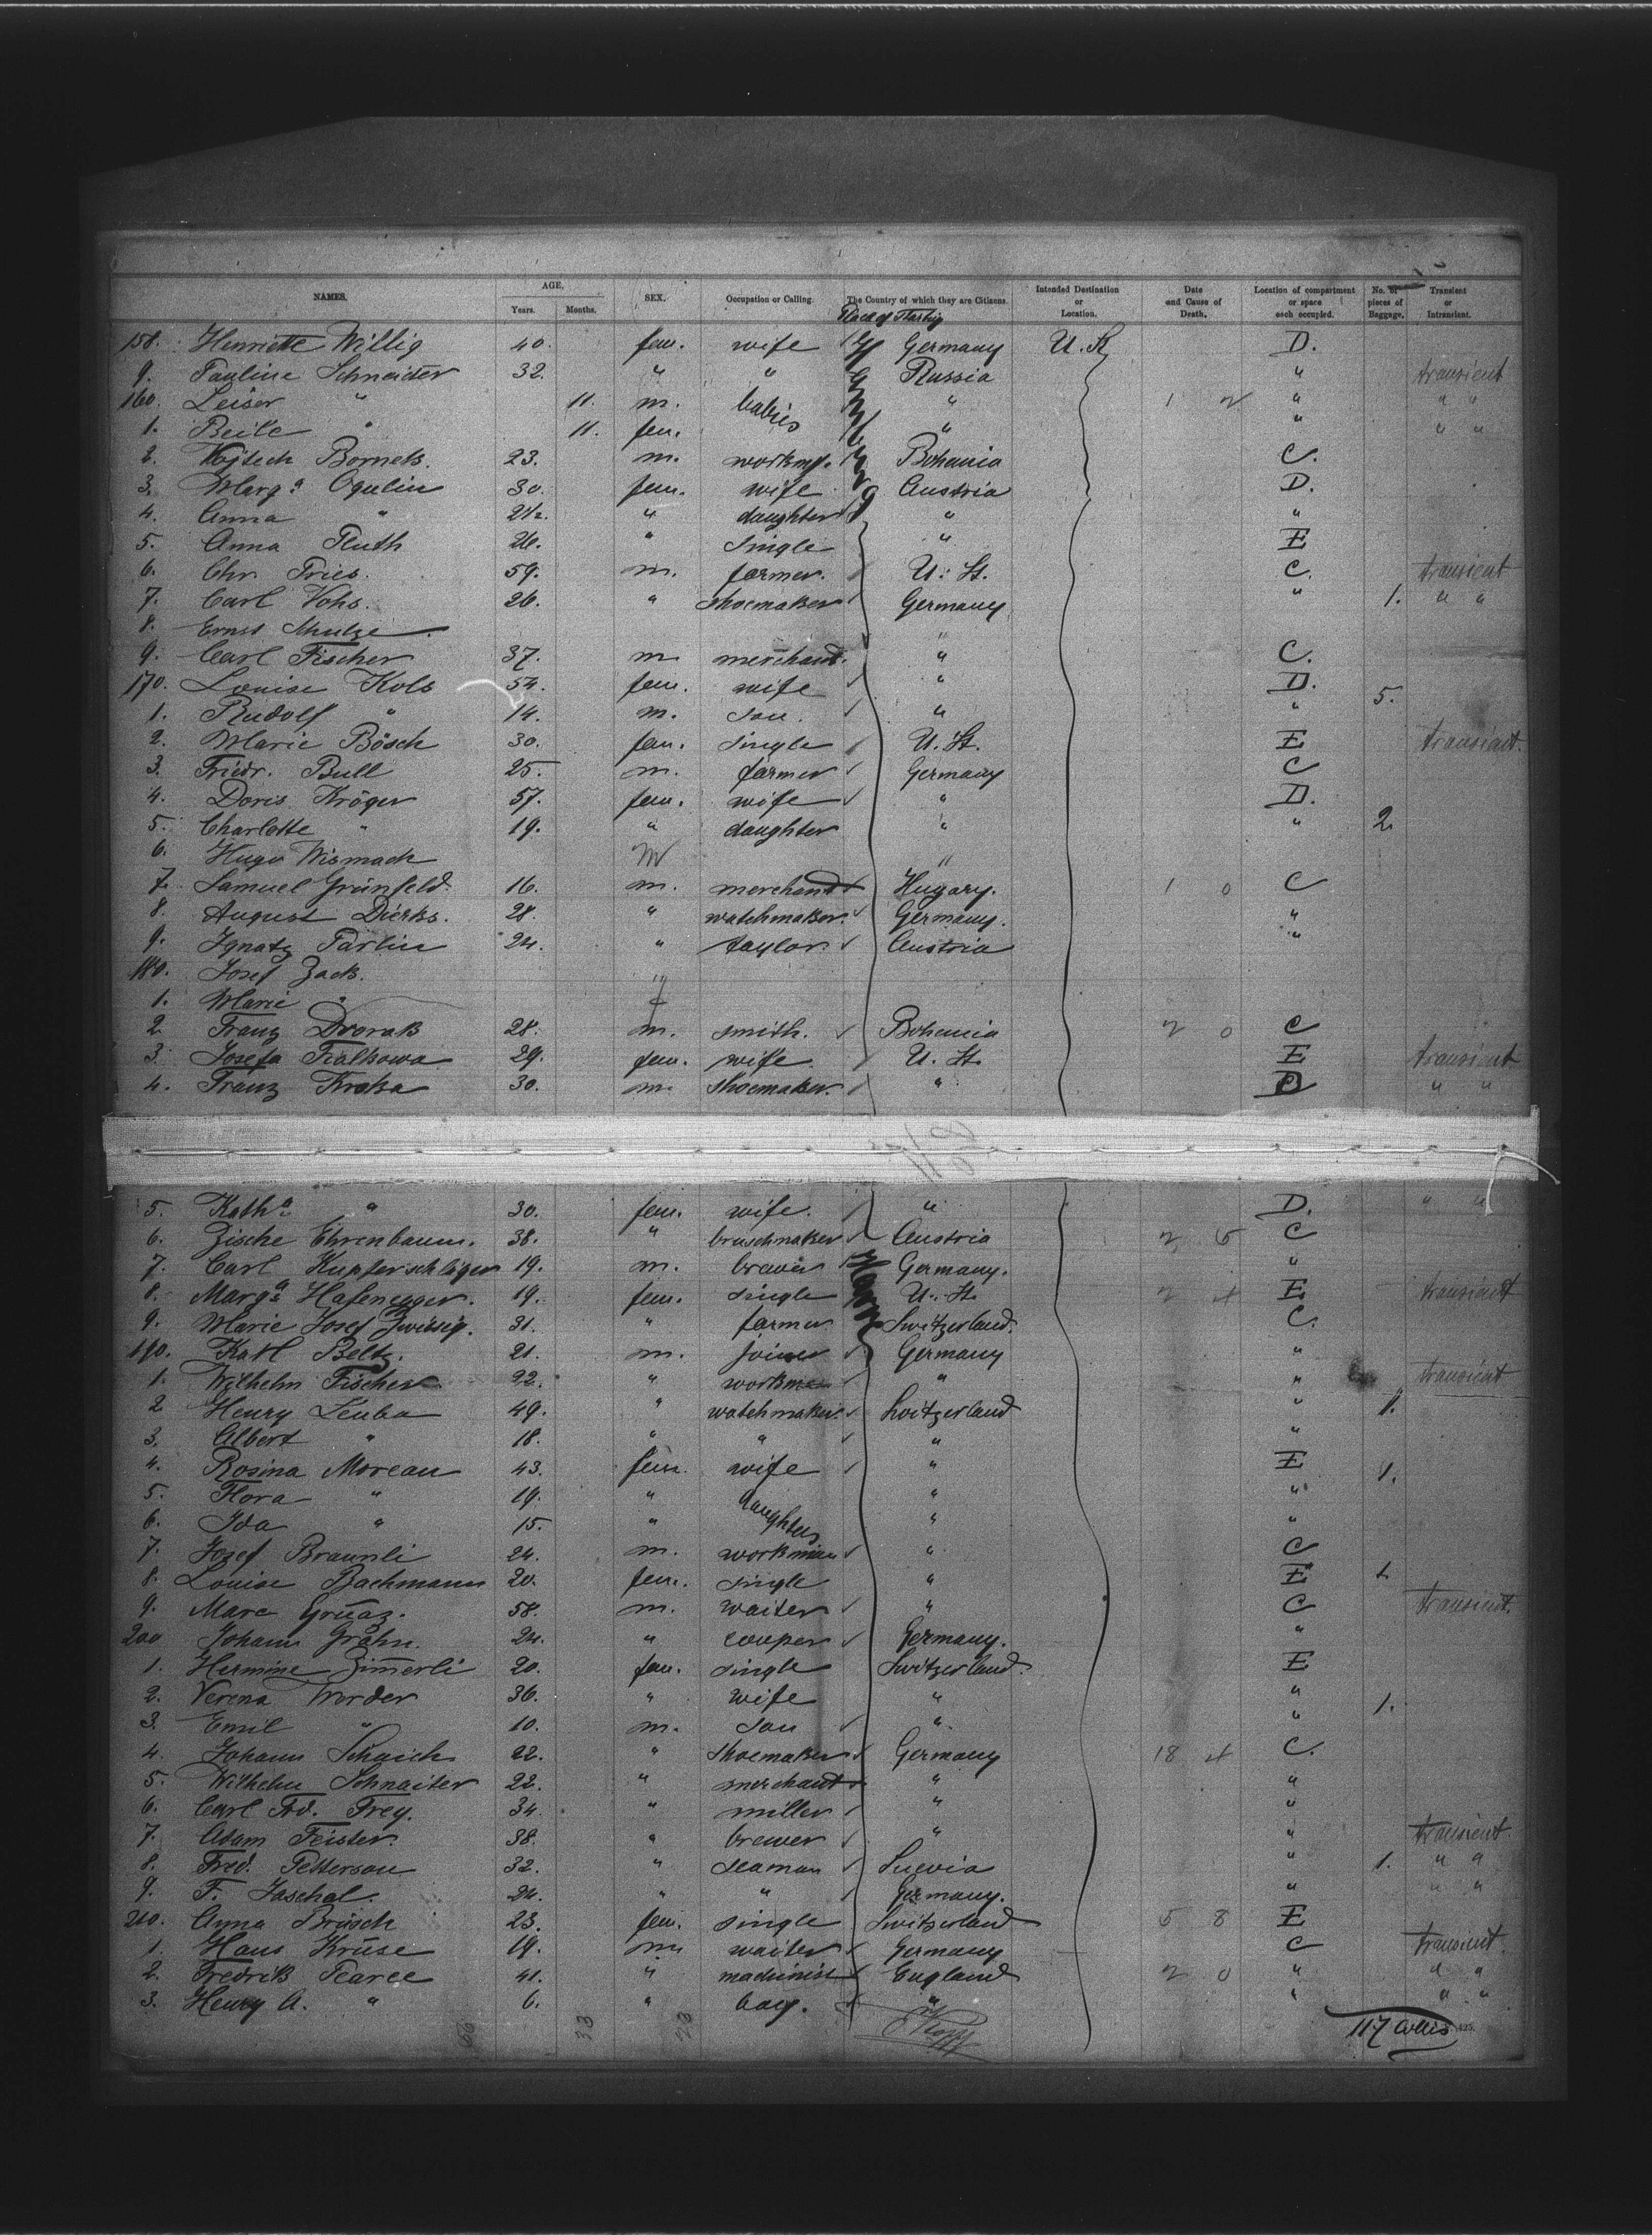 NAMES. AGE. Years. Months. SEX. Occupation or Calling. The Country of which they are Citizens. Intended Destination or Location. Date and Cause of Death. Location of compartment or space each occupied. No. of pieces of Baggage. Transient or Intransient.
Place of Starting
158. Henriette Willig 40. fem. wife Germany U. St. D.
9. Pauline Schneider 32. " " Russia " transient
160. Leiser " 11. m. babies " 1 2 " " "
1. Beile " 11. fem. " " " "
2. Vojtech Bornek. 23. m. workmn. Bohemia C.
3. Marga Ogulin 30. fem. wife Austria D.
4. Anna " 2½. " daughter " "
5. Anna Pluth 26. " single " E
6. Chr. Fries. 59. m. farmer. U. St. C. transient
7. Carl Vohs. 26. " shoemaker Germany " 1. " "
8. Ernst Schulze.
9. Carl Fischer 37. m merchand. " C.
170. Louise Kols 54. fem. wife " D. 5.
1. Rudolf " 14. m. son. " "
2. Marie Bösch 30. fem. single U. St. E transient.
3. Friedr. Bull 25. m. farmer Germany C
4. Doris Kröger 57. fem. wife " D.
5. Charlotte " 19. " daughter " " 2.
6. Hugo Wismach M "
7. Samuel Grünfeld 16. m. merchand Hugary. 1 0 C
8. August Dierks. 28. " watchmaker. Germany. "
9. Ignatz Parlin 24. " taylor. Austria "
180. Josef Zack.
1. Marie " f
2. Franz Dvorak 28. m. smith. Bohemia 2 0 C
3. Josefa Fialkowa 29. fem. wife. U. St. E transient
4. Franz Kroka 30. m. shoemaker. " D " "
5. Katha " 30. fem. wife. " D. " "
6. Zische Ehrenbaum. 38. " bruschmaker Austria 2 C
7. Carl Kupferschläger 19. m. brewer Germany. "
8. Marga Hafenegger. 19. fem. single U. St. 2 4 E transient
9. Marie Josef Zwissig. 31. " farmer Switzerland. C.
190. Karl Beltz. 21. m. joiner Germany "
1. Wilhelm Fischer 22. " workman " " transient
2 Henry Leuba 49. " watchmaker. Switzerland " 1.
3. Albert " 18. " " " "
4. Rosina Moreau 43. fem. wife " E 1.
5. Flora " 19. " daughters " "
6. Ida " 15. " " "
7. Josef Braunli 24. m. workman " C
8. Louise Bachmann 20. fem. single " E 1.
9. Marc Grüaz. 58. m. waiter " C transient.
200 Johann Grähn. 24. " couper Germany. "
1. Hermine Zimerli 20. fem. single Switzerland. E
2. Verena Worder 36. " wife " " 1.
3. Emil " 10. m. son " "
4. Johann Schaich 22. " shoemaker Germany 18 4 C.
5. Wilhelm Schnaiter 22. " merchand " "
6. Carl Frd. Frey. 34. " miller " "
7. Adam Feister. 38. " brewer " " transient
8. Fred. Petterson 32. " seaman Suevia " 1. " "
9. F. Jaschal. 24. " " Germany. " " "
210. Anna Brüsch 23. fem. single Switzerland 5 8 E
1. Hans Krüse 19. m waiter Germany C transient.
2. Fredrik Pearce 41. " machinist England 2 0 " " "
3. Henry A. " 6. " boy. " " " "
33 23
117 Collis